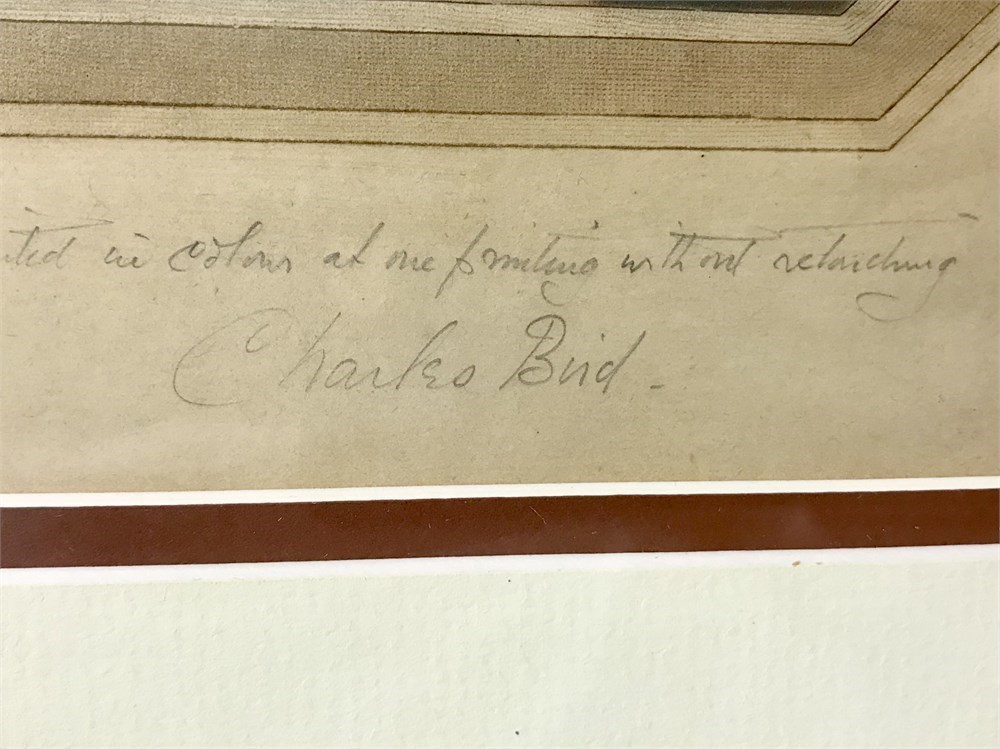 ted in colour at one printing without retouching
Charles Bird